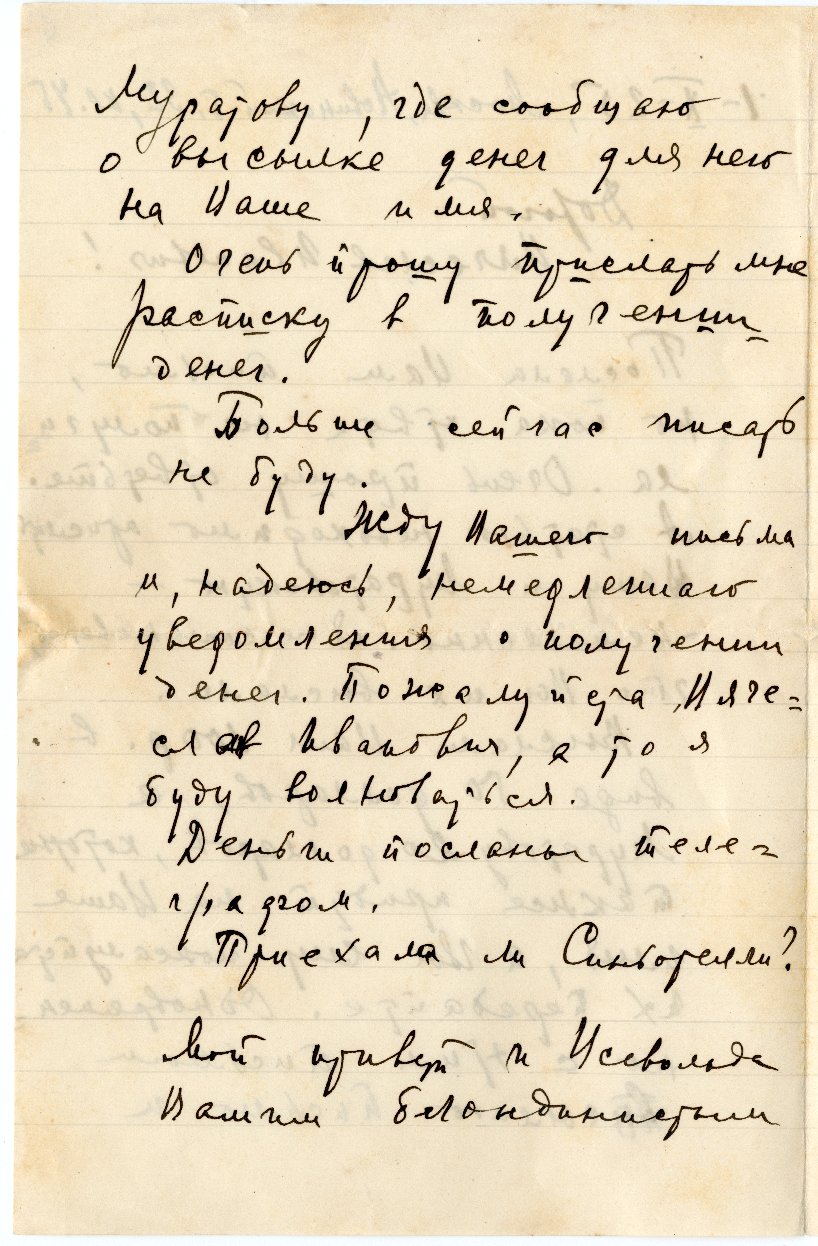 Муратову, где сообщаю
о высылке денег для него
на Ваше имя.
Очень прошу прислать мне
расписку в получении
денег.
Больше сейчас писать
не буду.
Жду Вашего письма
и, надеюсь, немедленного
уведомления о получении
денег. Пожалуйста, Вяче=
слав Иванович, а то я
буду волноваться.
Деньги посланы теле=
графом.
Приехала ли Синьорелли?
Мой привет и Всеволода
Вашим